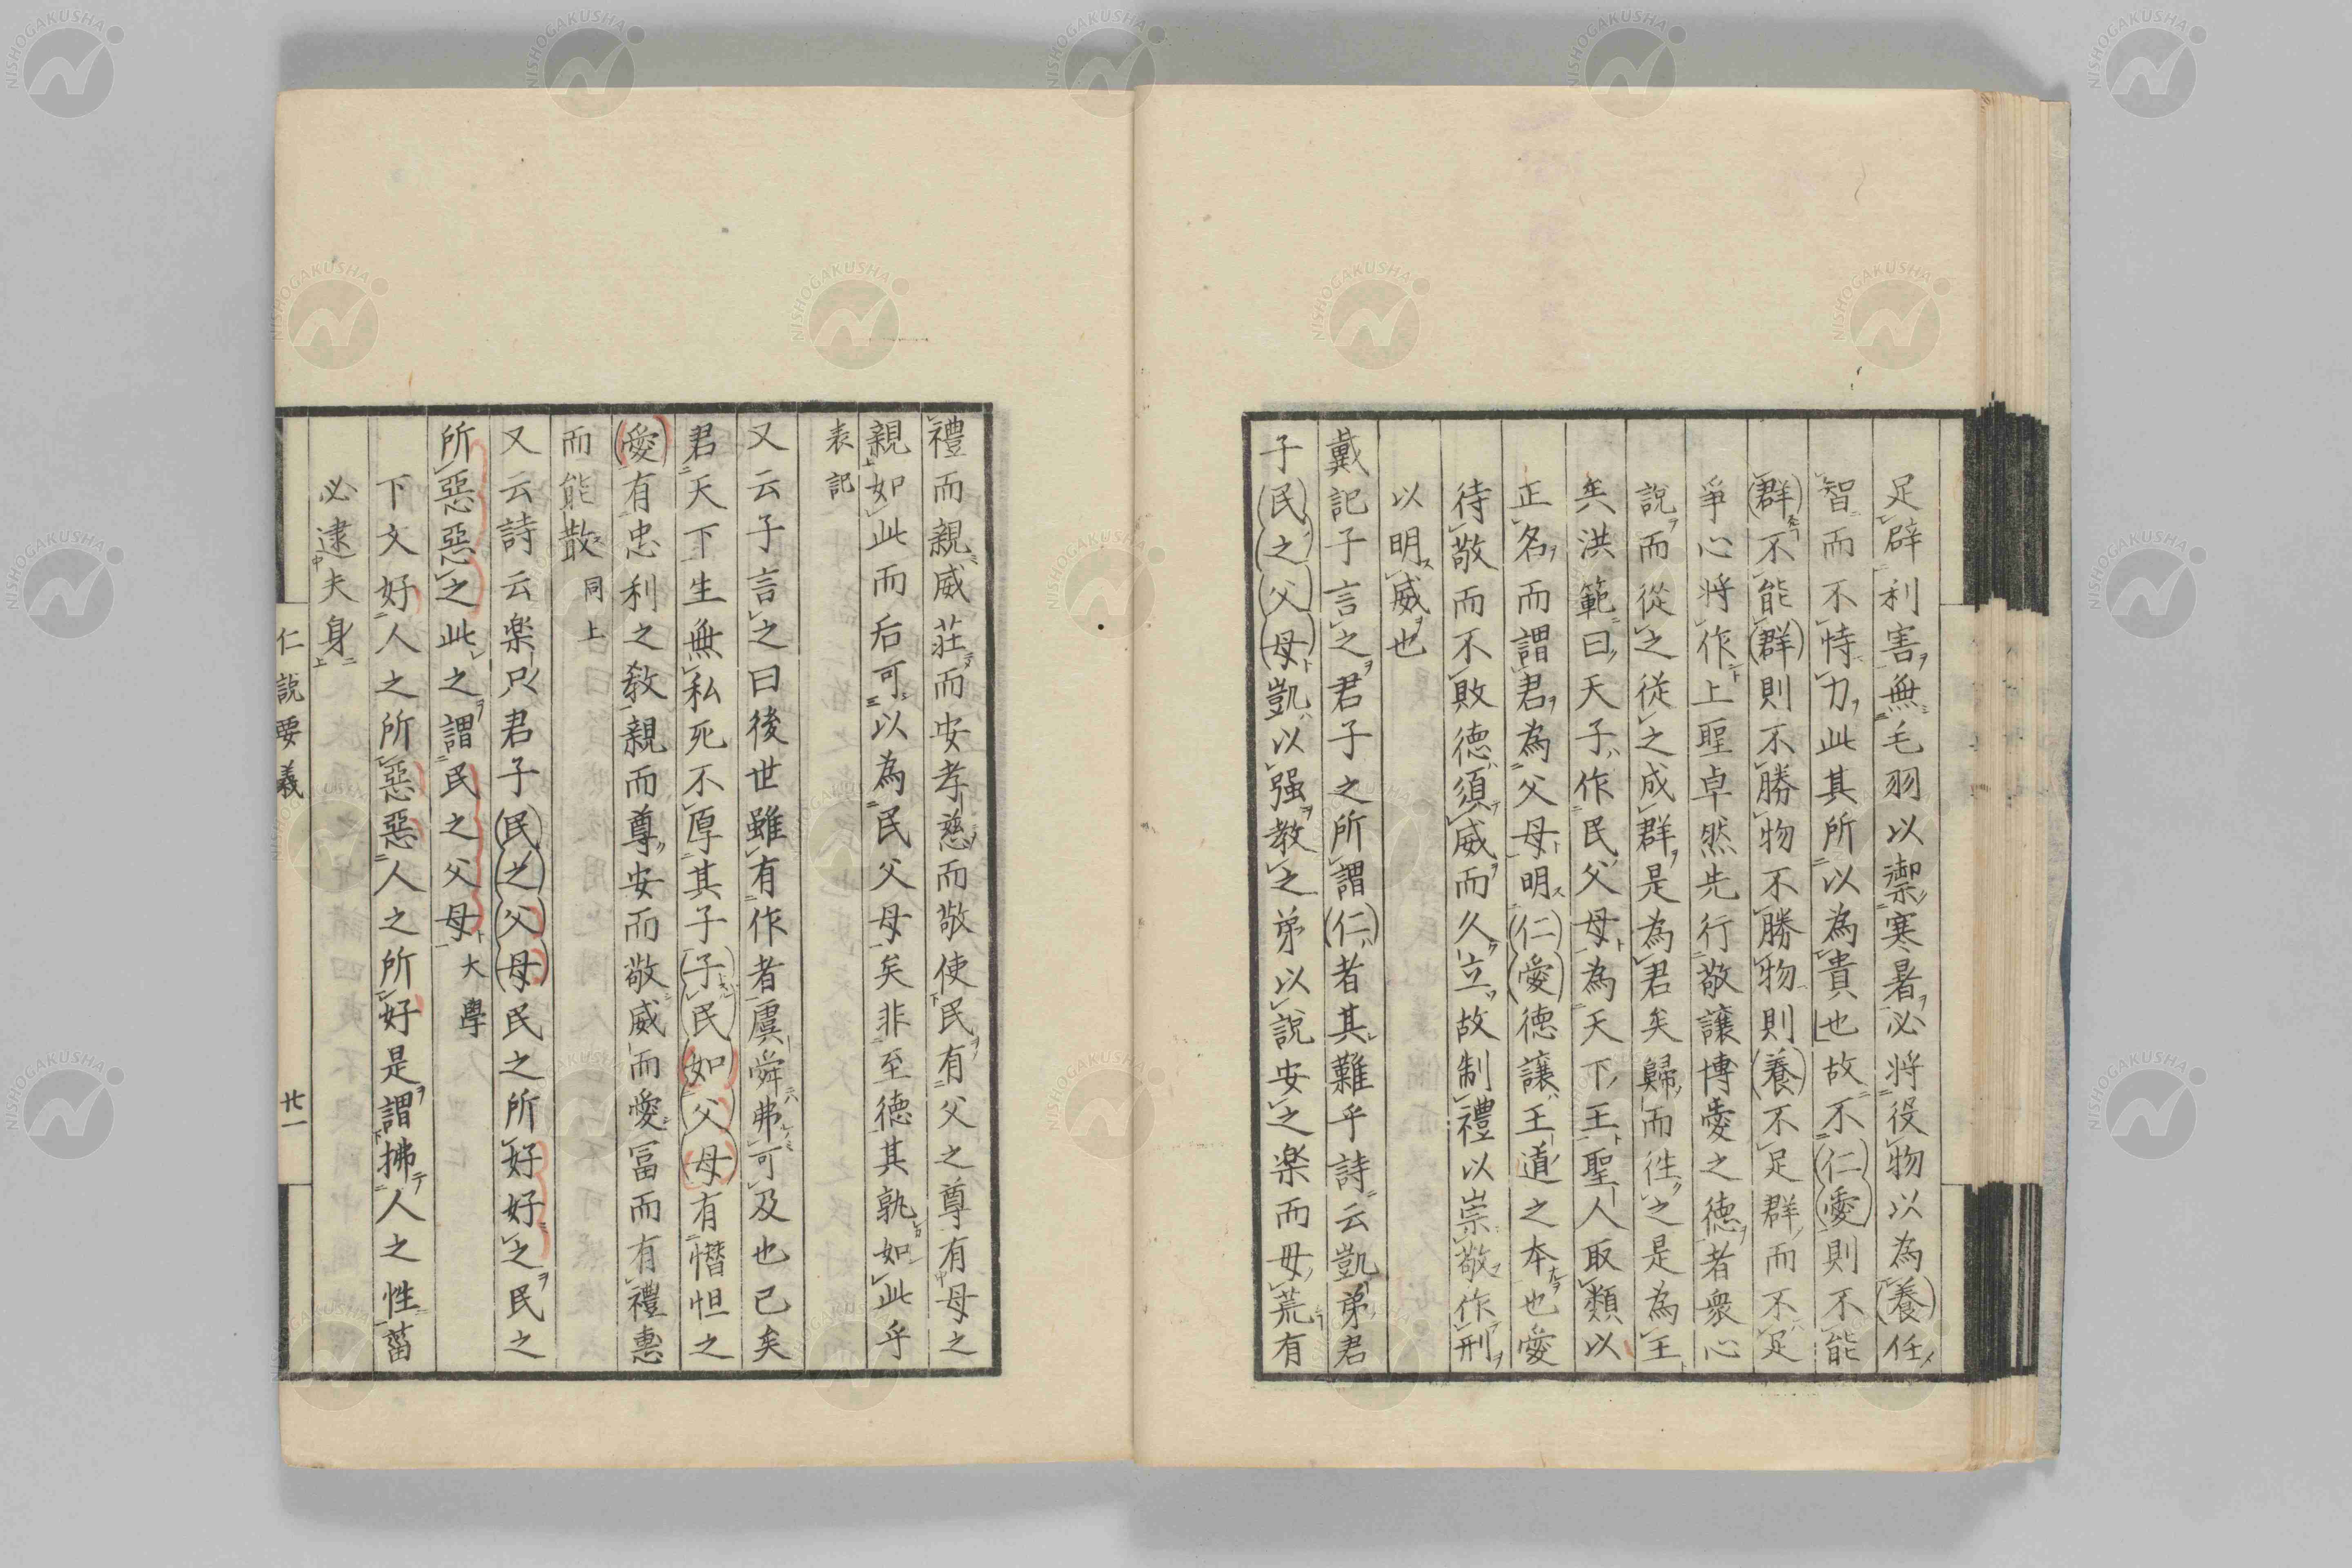 足辟利害無毛羽以禦寒暑必將役物以為養任
智而不恃力此其所以為貴也故不仁愛則不能
群不能群則不勝物不勝物則養不足群而不足
爭心將作上聖卓然先行敬讓博愛之德者衆心
說而從之從之成群是為君矣歸而徃之是為王
矣洪範曰天子作民父母為天下王聖人取類以
正名而謂君為父母明仁愛德讓王道之本也愛
待敬而不敗德須威而久立故制禮以崇敬作刑
以明威也
戴記子言之君子之所謂仁者其難乎詩云凱弟君
子民之父母凱以强教之弟以說安之楽而毋荒有
禮而親威荘而安孝慈而敬使民有父之尊有母之
親如此而后可以為民父母矣非至德其孰如此乎
表記
又云子言之曰後世雖有作者虞舜弗可及也已矣
君天下生無私死不厚其子子民如父母有憯怛之
愛有忠利之教親而尊安而敬威而愛冨而有禮惠
而能散同上
又云詩云楽只君子民之父母民之所好好之民之
所惡惡之此之謂民之父母大學
下文好人之所惡惡人之所好是謂拂人之性菑
必逮夫身
仁說要義
廿一